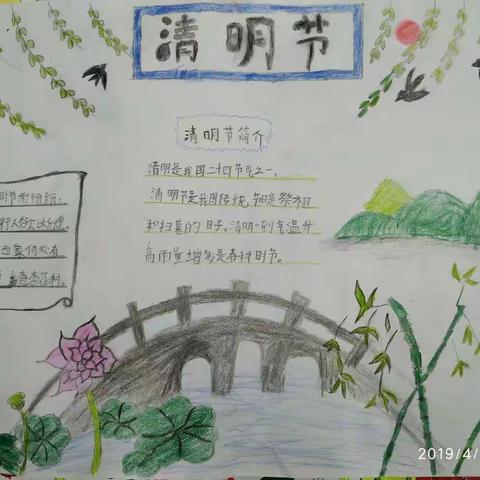 清明节
清明节简介
清明是我国二十四节气之一,
清明节是我国传统节日是祭祖
和扫墓的日子。清明一到气温升
高雨量增多是春耕时节。
时节雨纷纷,
行人欲断魂
家何处有
杏花村。
2019/4/